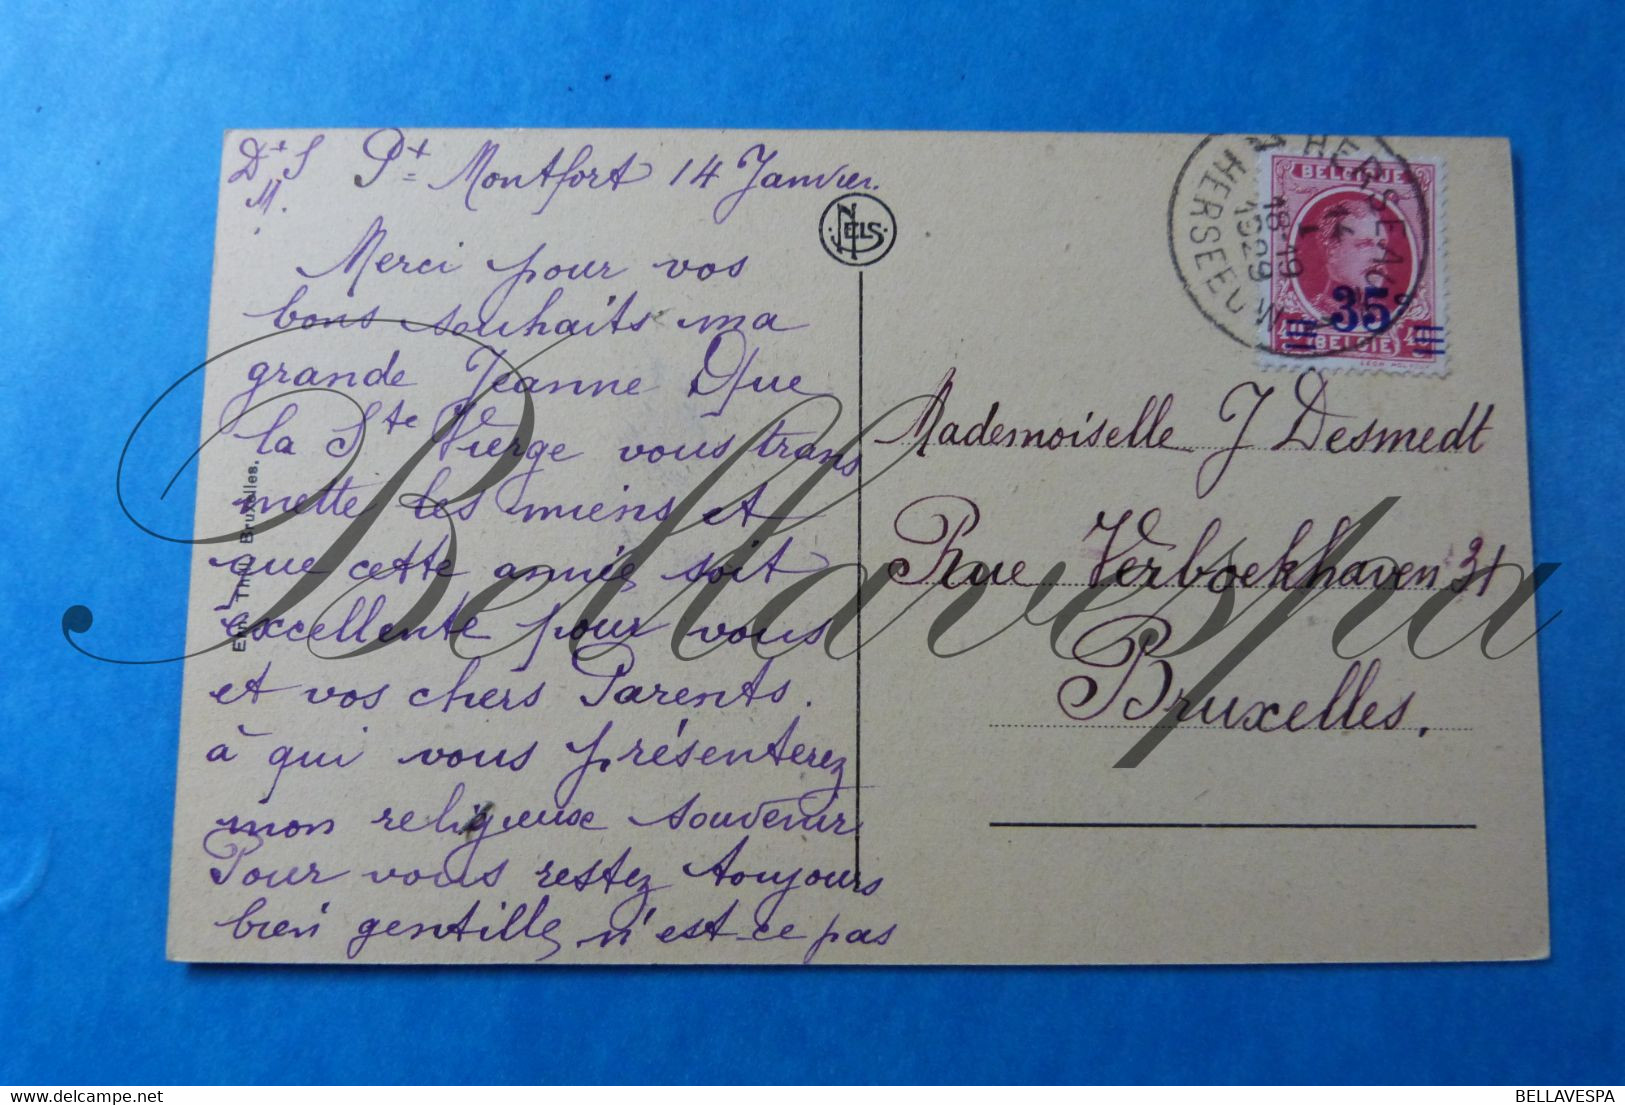 D + S
M.
Pt Montfort 14 Janvier.
Merci pour vos
bons souhaits ma
grande Jeanne Que
la Ste Vierge vous trans
mette les miens et
que cette année soit
excellente pour vous
et vos chers Parents.
à qui vous présenterez
mon religieux souvenir
Pour vous restez toujours
bien gentille n'est-ce pas
NELS
Bruxelles.
BELGIQUE
35
BELGIË
HERSEAUX
HERSEEUW
14
I
18-19
1929
Mademoiselle J Desmedt
Rue Verboekhaven 31
Bruxelles.
Bellavespa
delcampe.net
BELLAVESPA